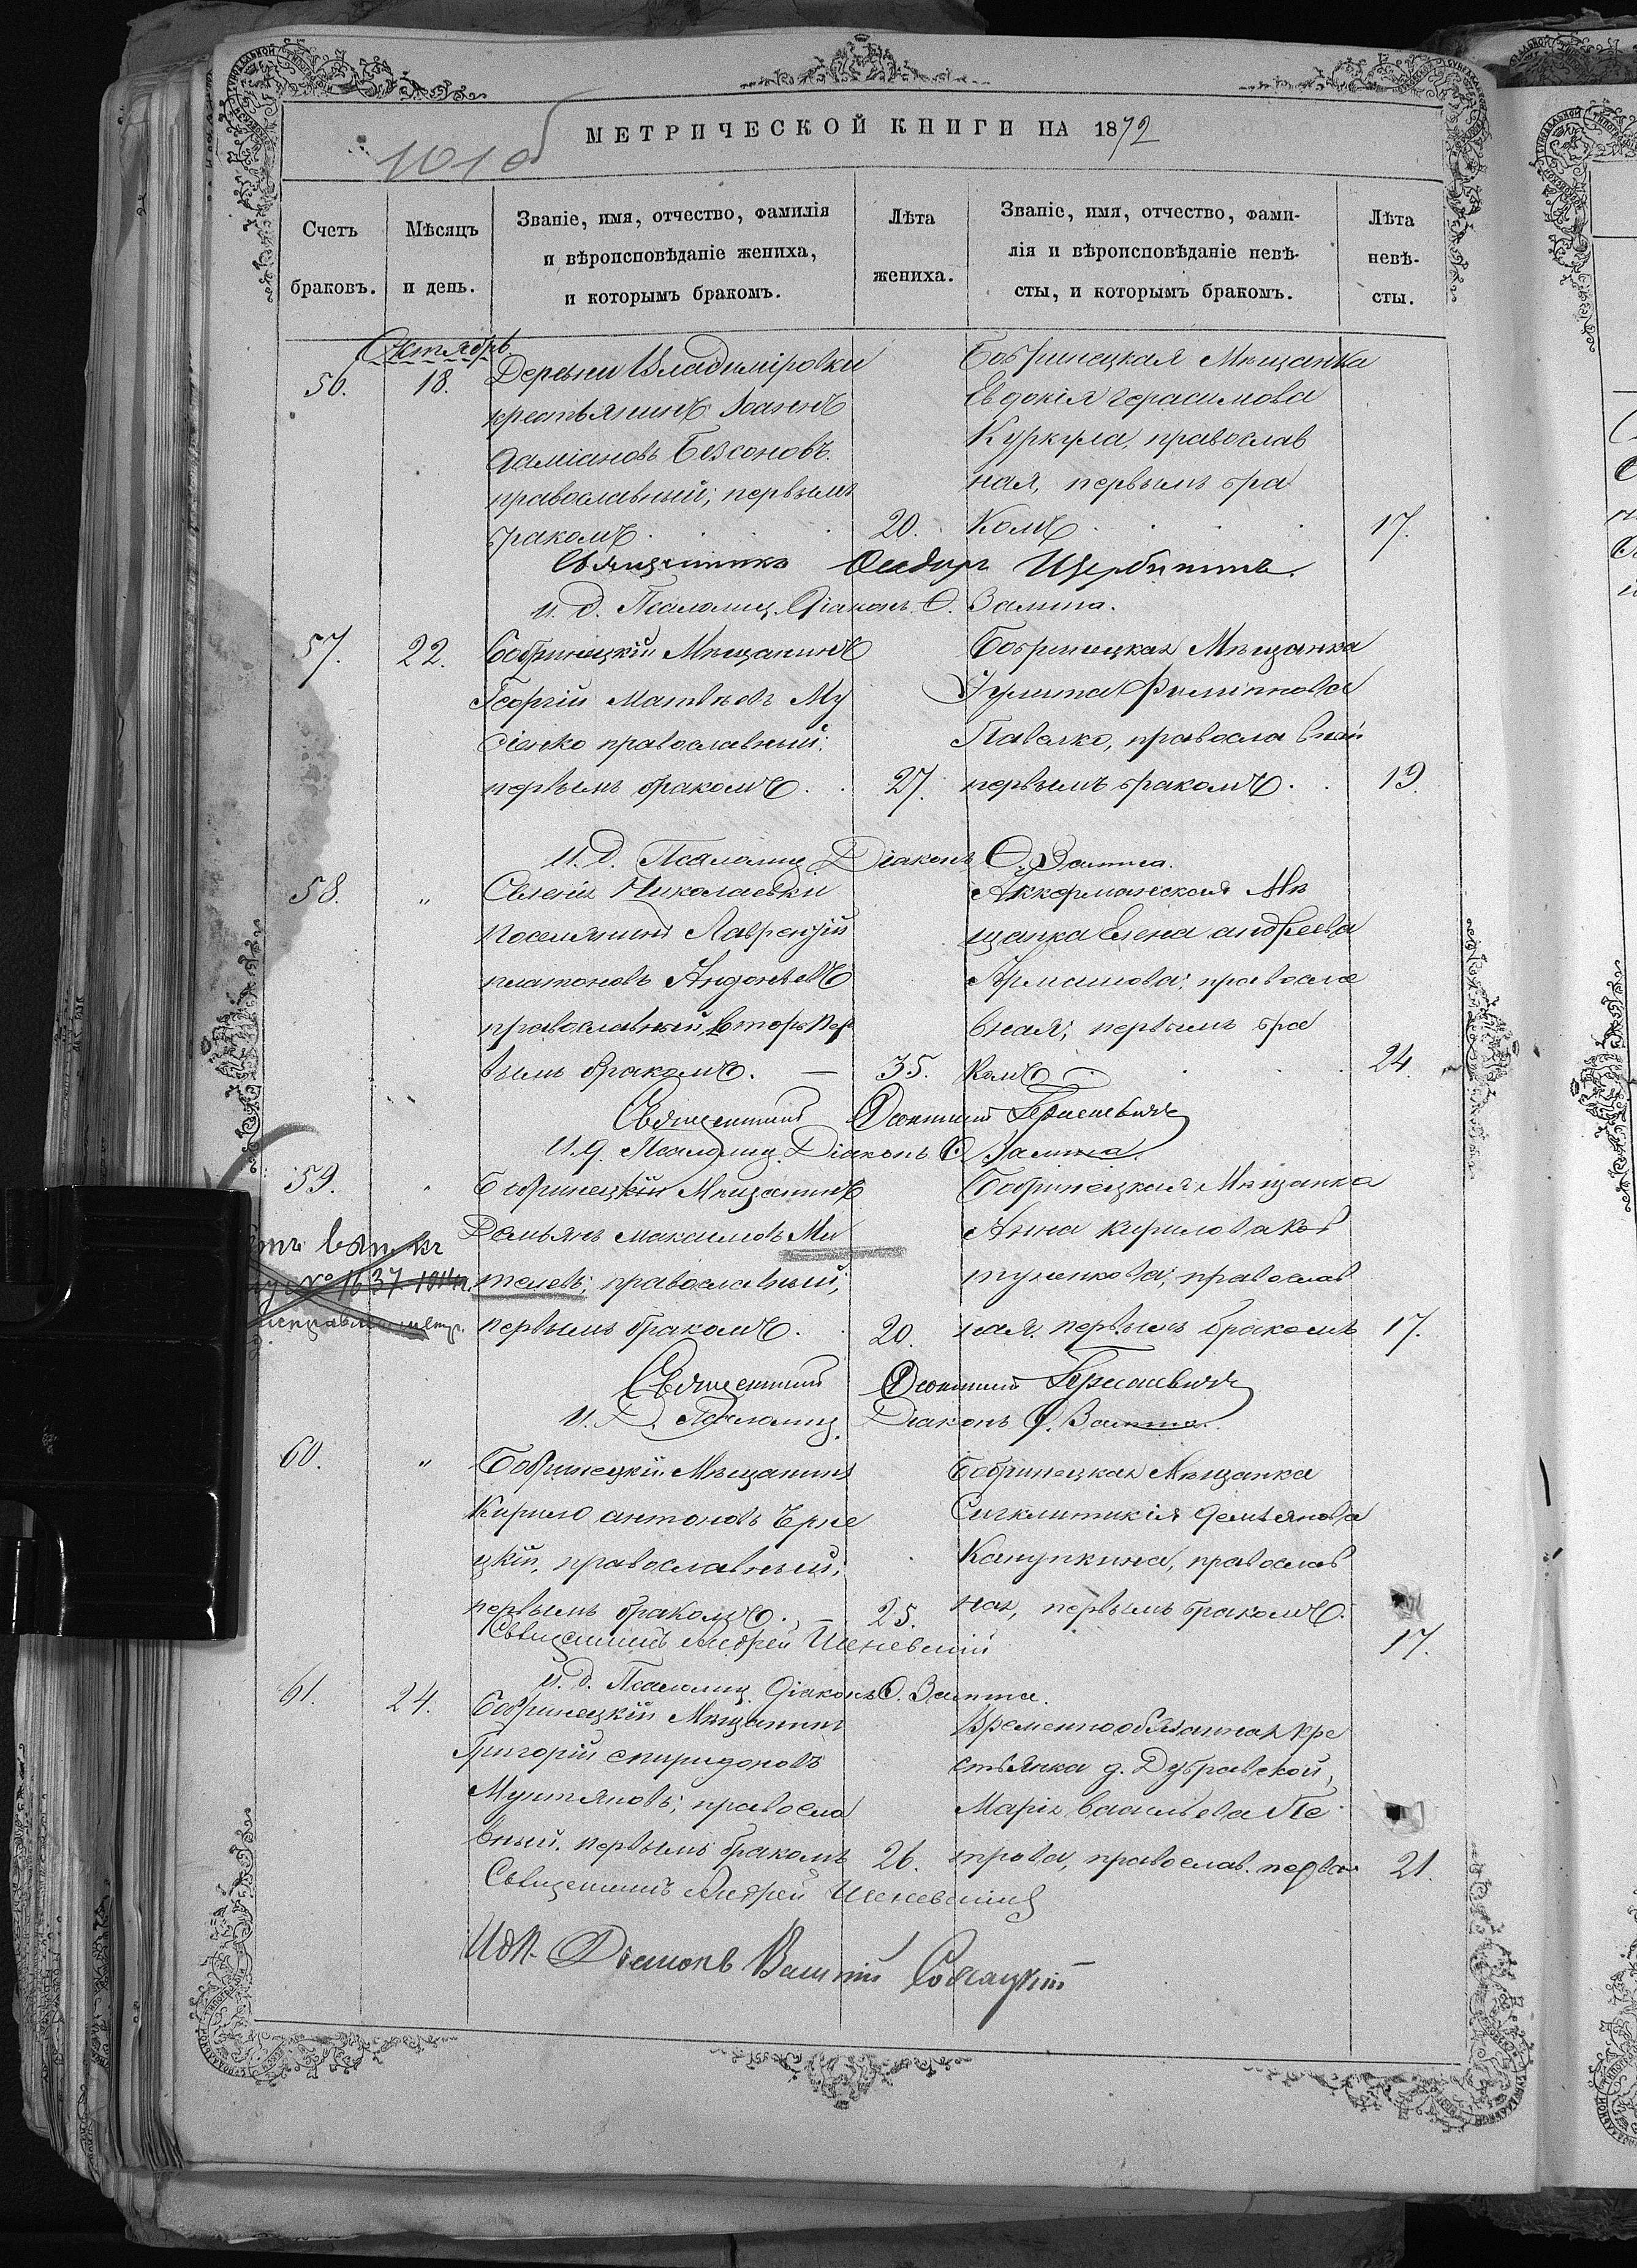 МЕТРИЧЕСКОЙ КНИГИ НА 1872
101 об
Счетъ браковъ.
Мѣсяцъ и день.
Званіе, имя, отчество, фамилія
и вѣроисповѣданіе жениха,
и которымъ бракомъ.
Лѣта жениха.
Званіе, имя, отчество, фами-
лія и вѣроисповѣданіе невѣ-
сты, и которымъ бракомъ.
Лѣта невѣ-
сты.
Октябрь
56. 18. Деревни Владиміровки
крестьянинъ Іоаннъ
Даміановъ Безсоновъ.
православный, первымъ
бракомъ. 20.
Бобринецкая Мѣщанка
Евдокія Герасимова
Куркула, православ
ная, первымъ бра
комъ 17.
Священникъ Щербининъ.
и. д. Псаломщ. Діаконъ Ѳ. Заппа.
57. 22. Бобринецкій Мѣщанинъ
Георгій Матвѣевъ Му
сіенко православный;
первымъ бракомъ. 27.
Бобринецкая Мѣщанка
Іулита Филиппова
Павелко, православной
первымъ бракомъ. 19.
И. д. Псаломщ Діаконъ Ѳ. Заппа.
58. " Селенія Николаевки
поселянинъ Лаврентій
платоновъ
православный, вторы пер
вымъ бракомъ. — 35.
Аккерманская Мѣ
щанка Елена андреева
православ
ная; первымъ бра
комъ 24.
Священникъ
И. д. Псаломщ. Діаконъ Ѳ. Заппа.
59. " Бобринецкій Мѣщанинъ
Демьянъ максимовъ Ми
телевъ; православный;
первымъ бракомъ. 20.
№ 1637
Бобринецкая Мѣщанка
Анна кирилова Ков
туненкова; православ
ная, первымъ бракомъ 17.
Священникъ
И. Д. Псаломщ. Діаконъ Ѳ. Заппа.
60. " Бобринецкій Мѣщанинъ
Кирило антоновъ Черне
цкій, православный;
первымъ бракомъ. — 25.
Бобринецкая Мѣщанка
Сигклитикія демьянова
Капункина, православ
ная, первымъ бракомъ.
17.
Священникъ Андрей
и. д. Псаломщ. Діаконъ Ѳ. Заппа.
61. 24. Бобринецкій Мѣщанинъ
Григорій спиридоновъ
Мунтяновъ; правосла
вный, первымъ бракомъ 26.
Временнообязанная кре
стьянка д. Дубравской,
Марія васильева Пе
трова, православ. первы 21.
Священникъ Андрей
ИдП. Діаконъ